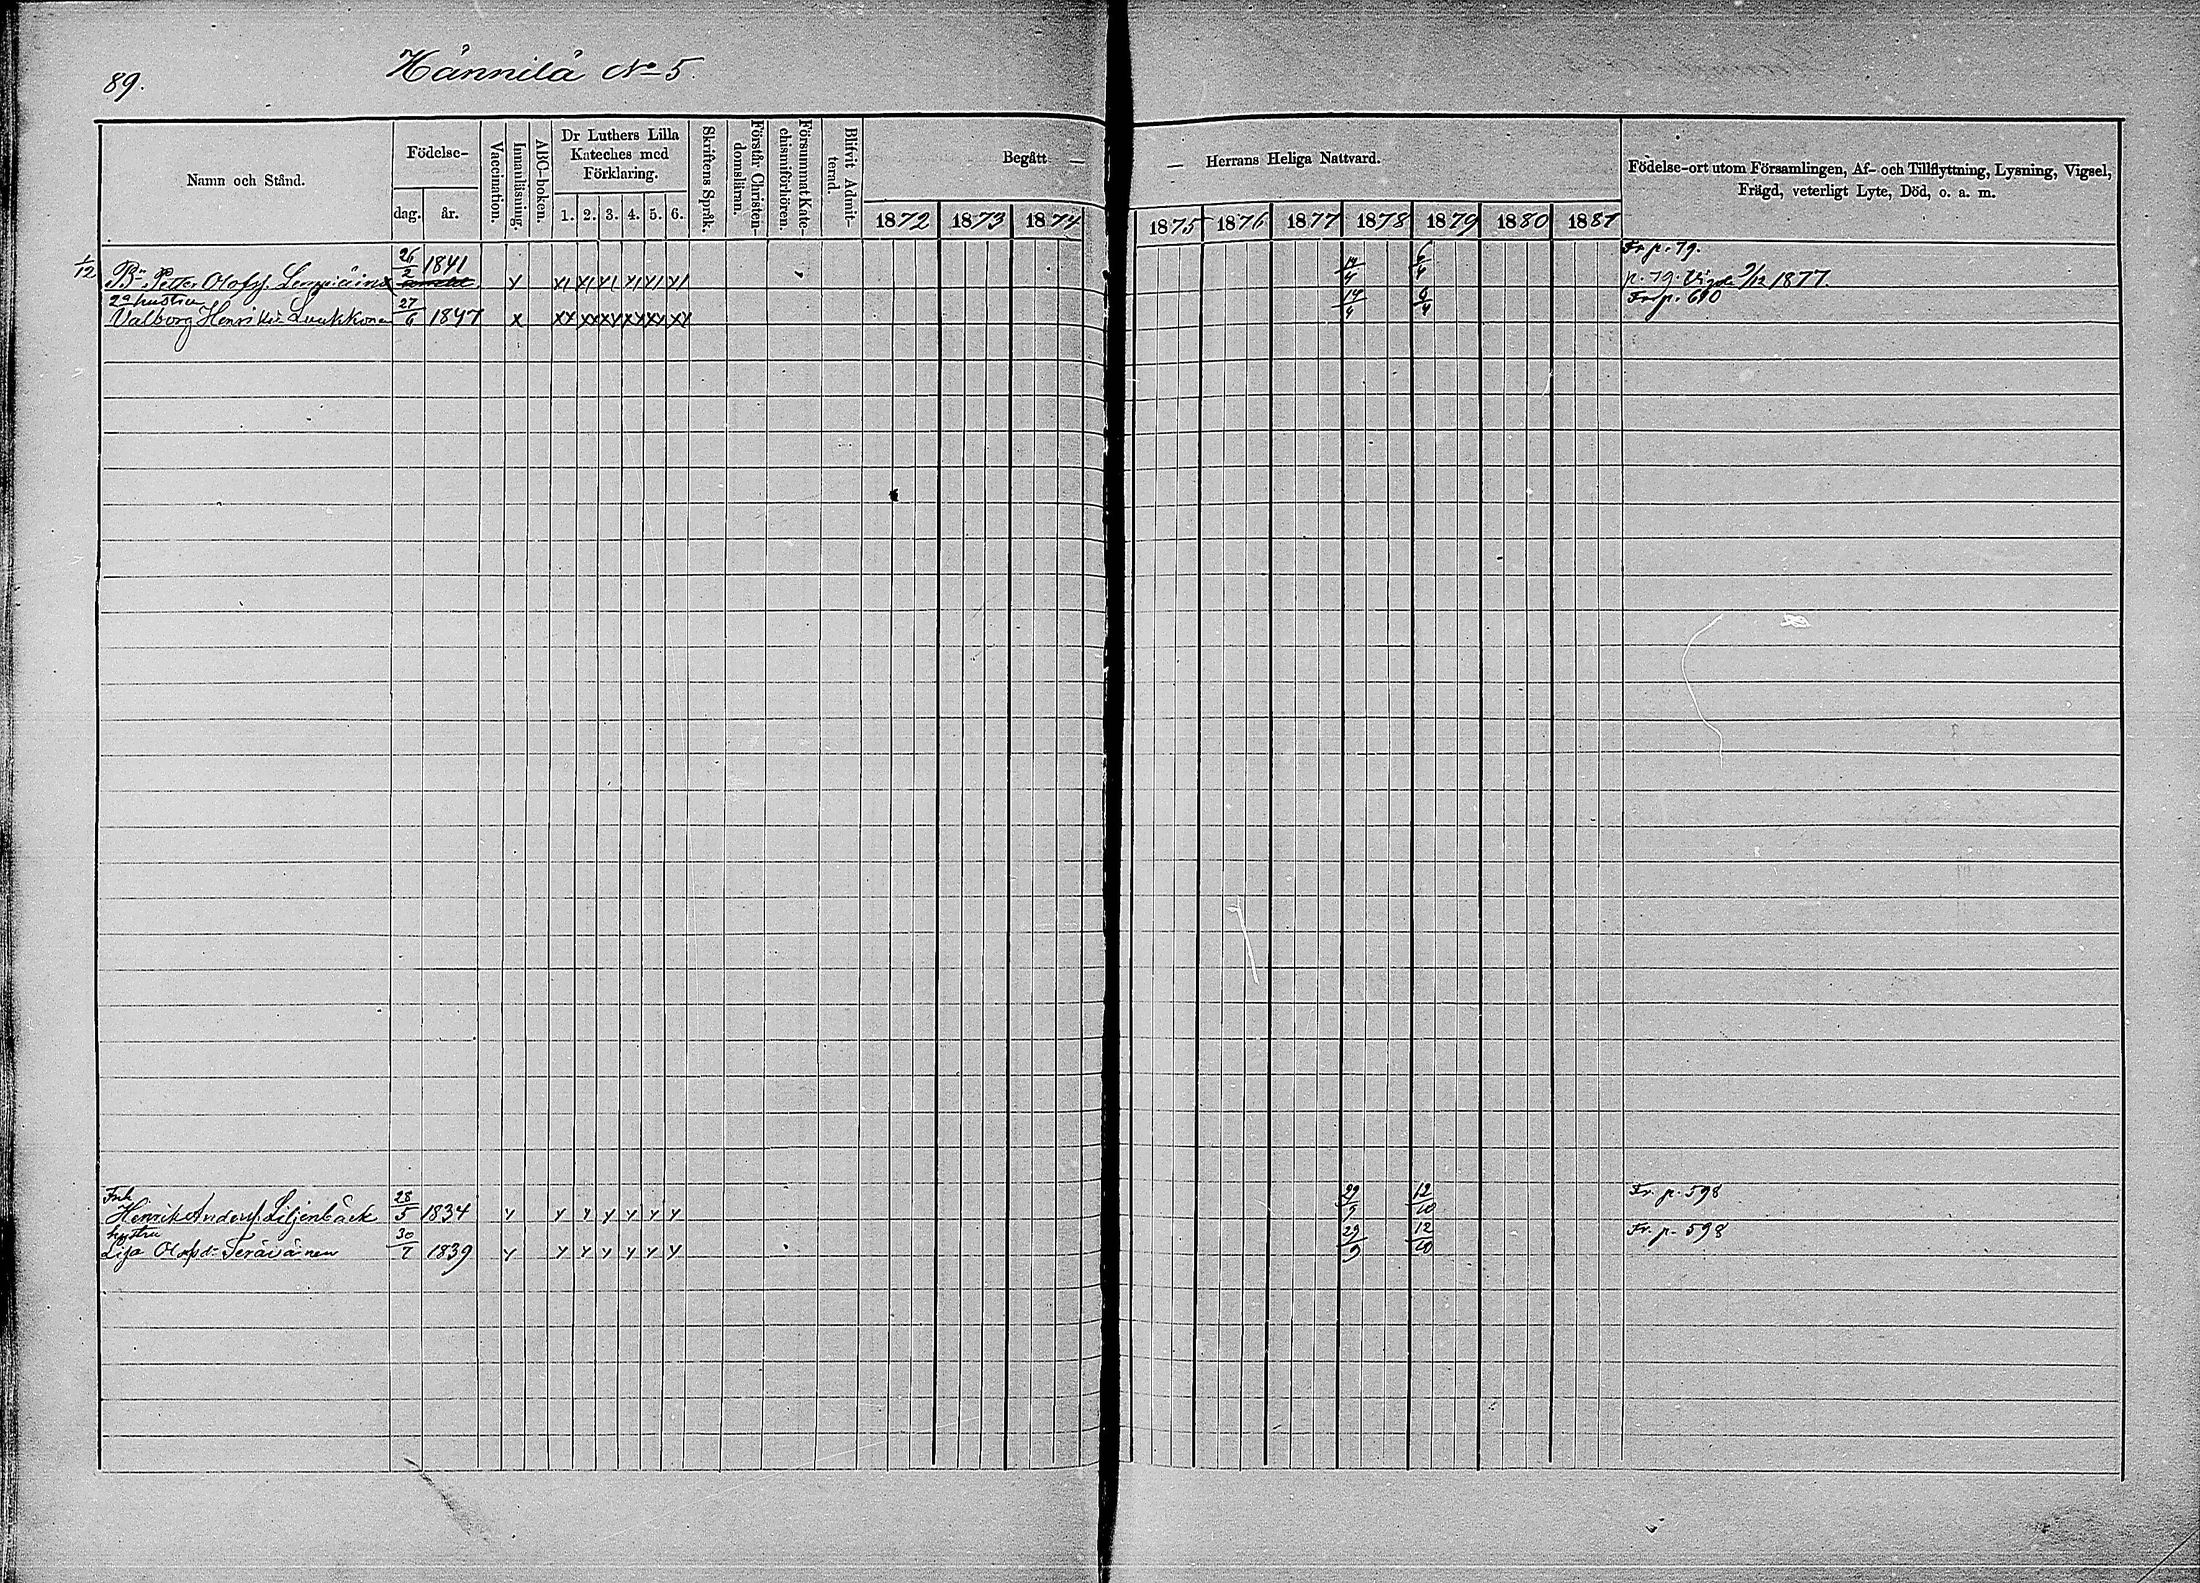 89.
Hännilä No 5.
Namn och Stånd.
Födelse-
dag.
år.
Vaccination.
Innanläsning.
ABC-boken.
Dr Luthers Lilla
Kateches med
Förklaring.
1. 2. 3. 4. 5. 6.
Skriftens Språk.
Förstår Christen-
domslärnn.
Försummat Kate-
chismiförhören.
Blifvit Admit-
terad.
Begått —
— Herrans Heliga Nattvard.
1872 1873 1874 1875 1876 1877 1878 1879 1880 1881
Födelse-ort utom Församlingen, Af- och Tillflyttning, Lysning, Vigsel,
Frägd, veterligt Lyte, Död, o. a. m.
Fr p. 79.
1/12 Bn Petter Olofss. 26/2 1841 Y XI XI YI YI YI YI 14/4 6/4 p. 79. Vigde 9/12 1877.
2a hustru Fr p. 610
Valborg Henriksd Luukkonen 27/6 1847 X XX XX XX XX XX XX 14/4 6/4
Inh
Henrik Anderss. Liljenbäck 28/5 1834 Y Y Y Y Y Y Y 29/9 12/10 Fr. p. 598
hustru
Lisa Olofsd. Teräväinen 30/7 1839 Y Y Y Y Y Y Y 29/9 12/10 Fr. p. 598